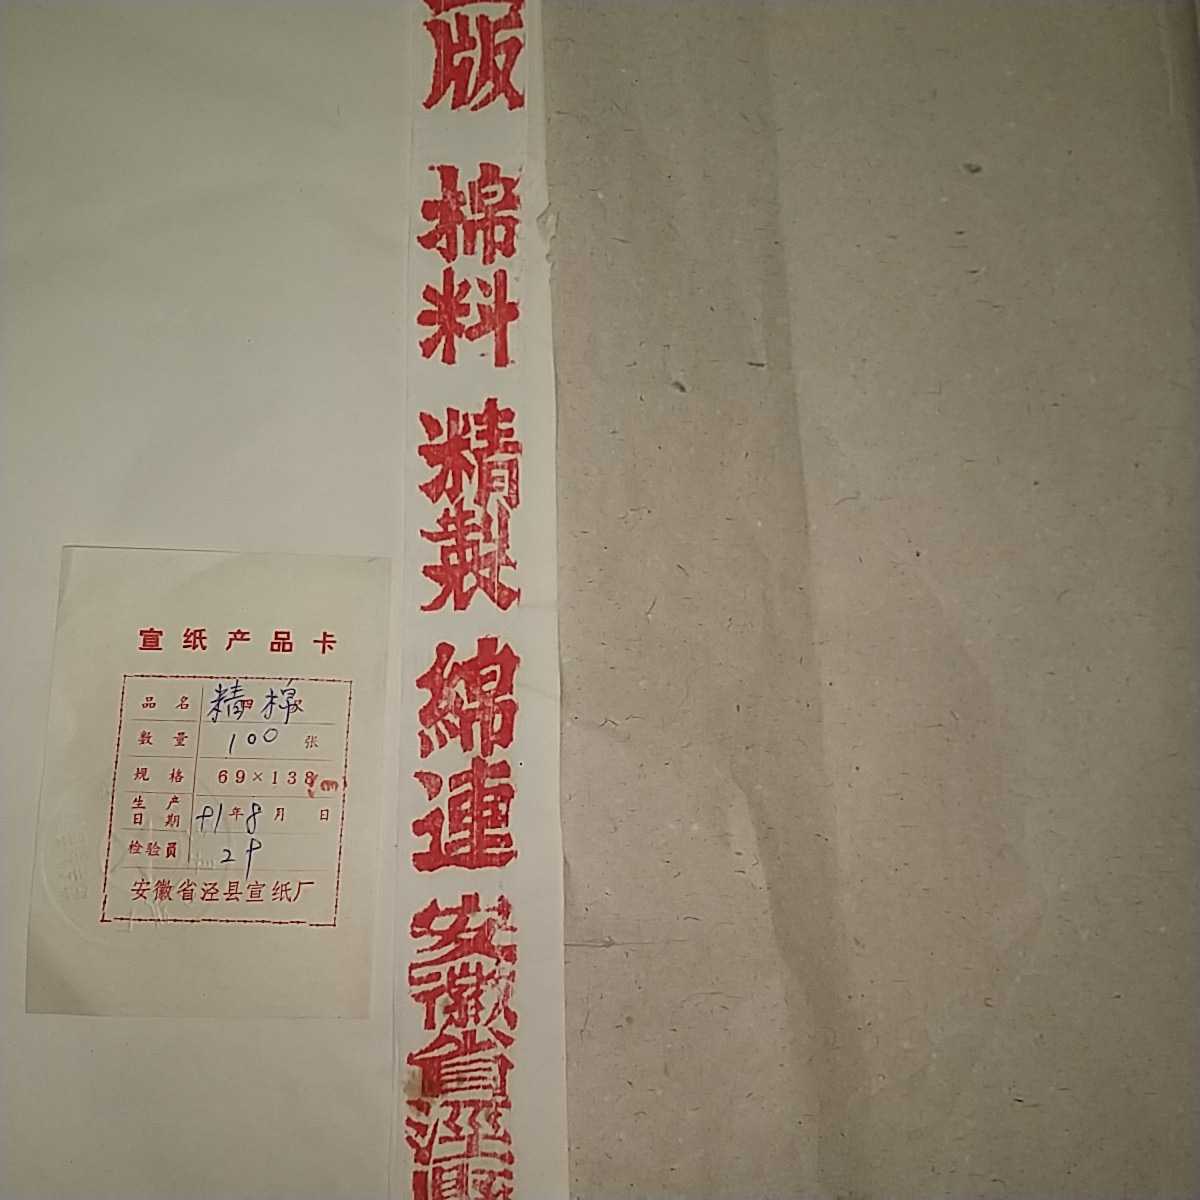 版
棉料
精製
綿連
安徽省涇縣
宣纸产品卡
品名 精棉
数量 100 张
规格 69×138cm
生产日期 91年8月 日
检验员 29
安徽省泾县宣纸厂